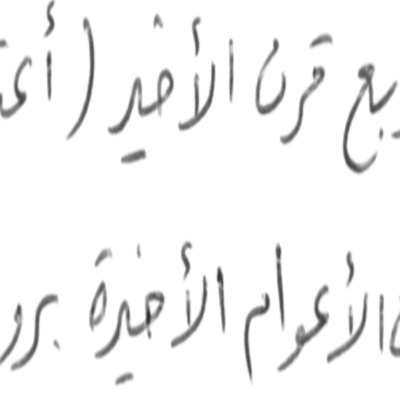 ربع قرن الأخير (أي
الأعوام الأخيرة برو